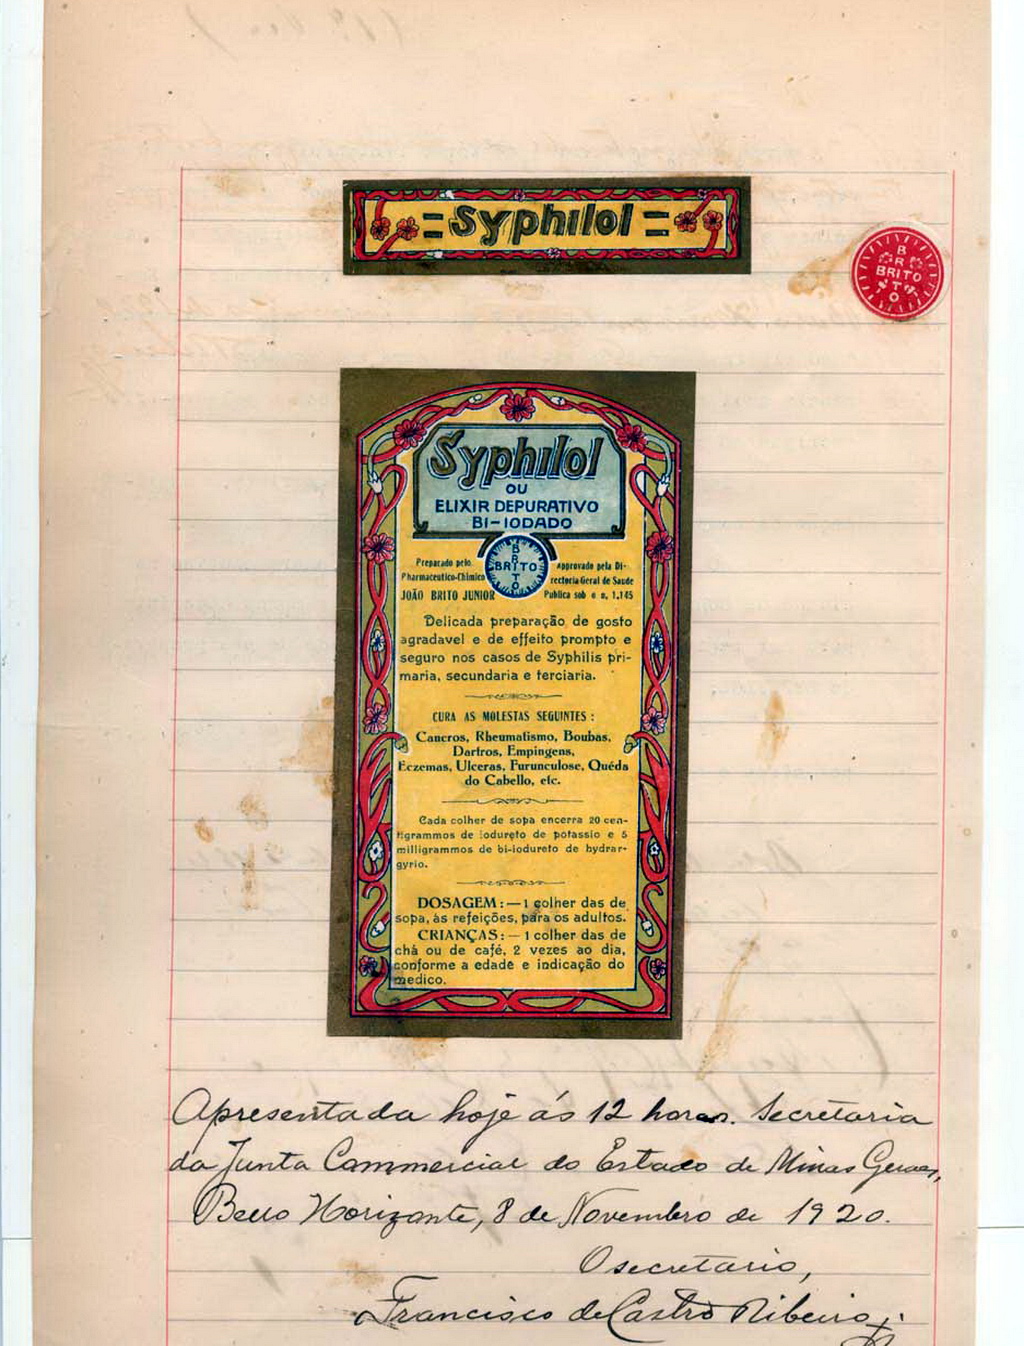 =Syphilol=
B
R
BRITO
T
O
Syphilol
OU
ELIXIR DEPURATIVO
BI-IODADO
B
R
BRITO
T
O
Preparado pelo
Pharmaceutico-Chimico
JOÃO BRITO JUNIOR
Approvado pela Di-
rectoria Geral de Saude
Publica sob o n. 1.145
Delicada preparação de gosto
agradavel e de effeito prompto e
seguro nos casos de Syphilis pri-
maria, secundaria e terciaria.
CURA AS MOLESTAS SEGUINTES :
Cancros, Rheumatismo, Boubas,
Dartros, Empingens,
Eczemas, Ulceras, Furunculose, Quéda
do Cabello, etc.
Cada colher de sopa encerra 20 cen-
tigrammos de iodureto de potassio e 5
milligrammos de bi-iodureto de hydrar-
gyrio.
DOSAGEM :— 1 colher das de
sopa, ás refeições, para os adultos.
CRIANÇAS :— 1 colher das de
chá ou de café, 2 vezes ao dia,
conforme a edade e indicação do
medico.
Apresentada hoje ás 12 horas. Secretaria
da Junta Commercial do Estado de Minas Geraes,
Bello Horizonte, 8 de Novembro de 1920.
O secretario,
Francisco de Castro Ribeiro